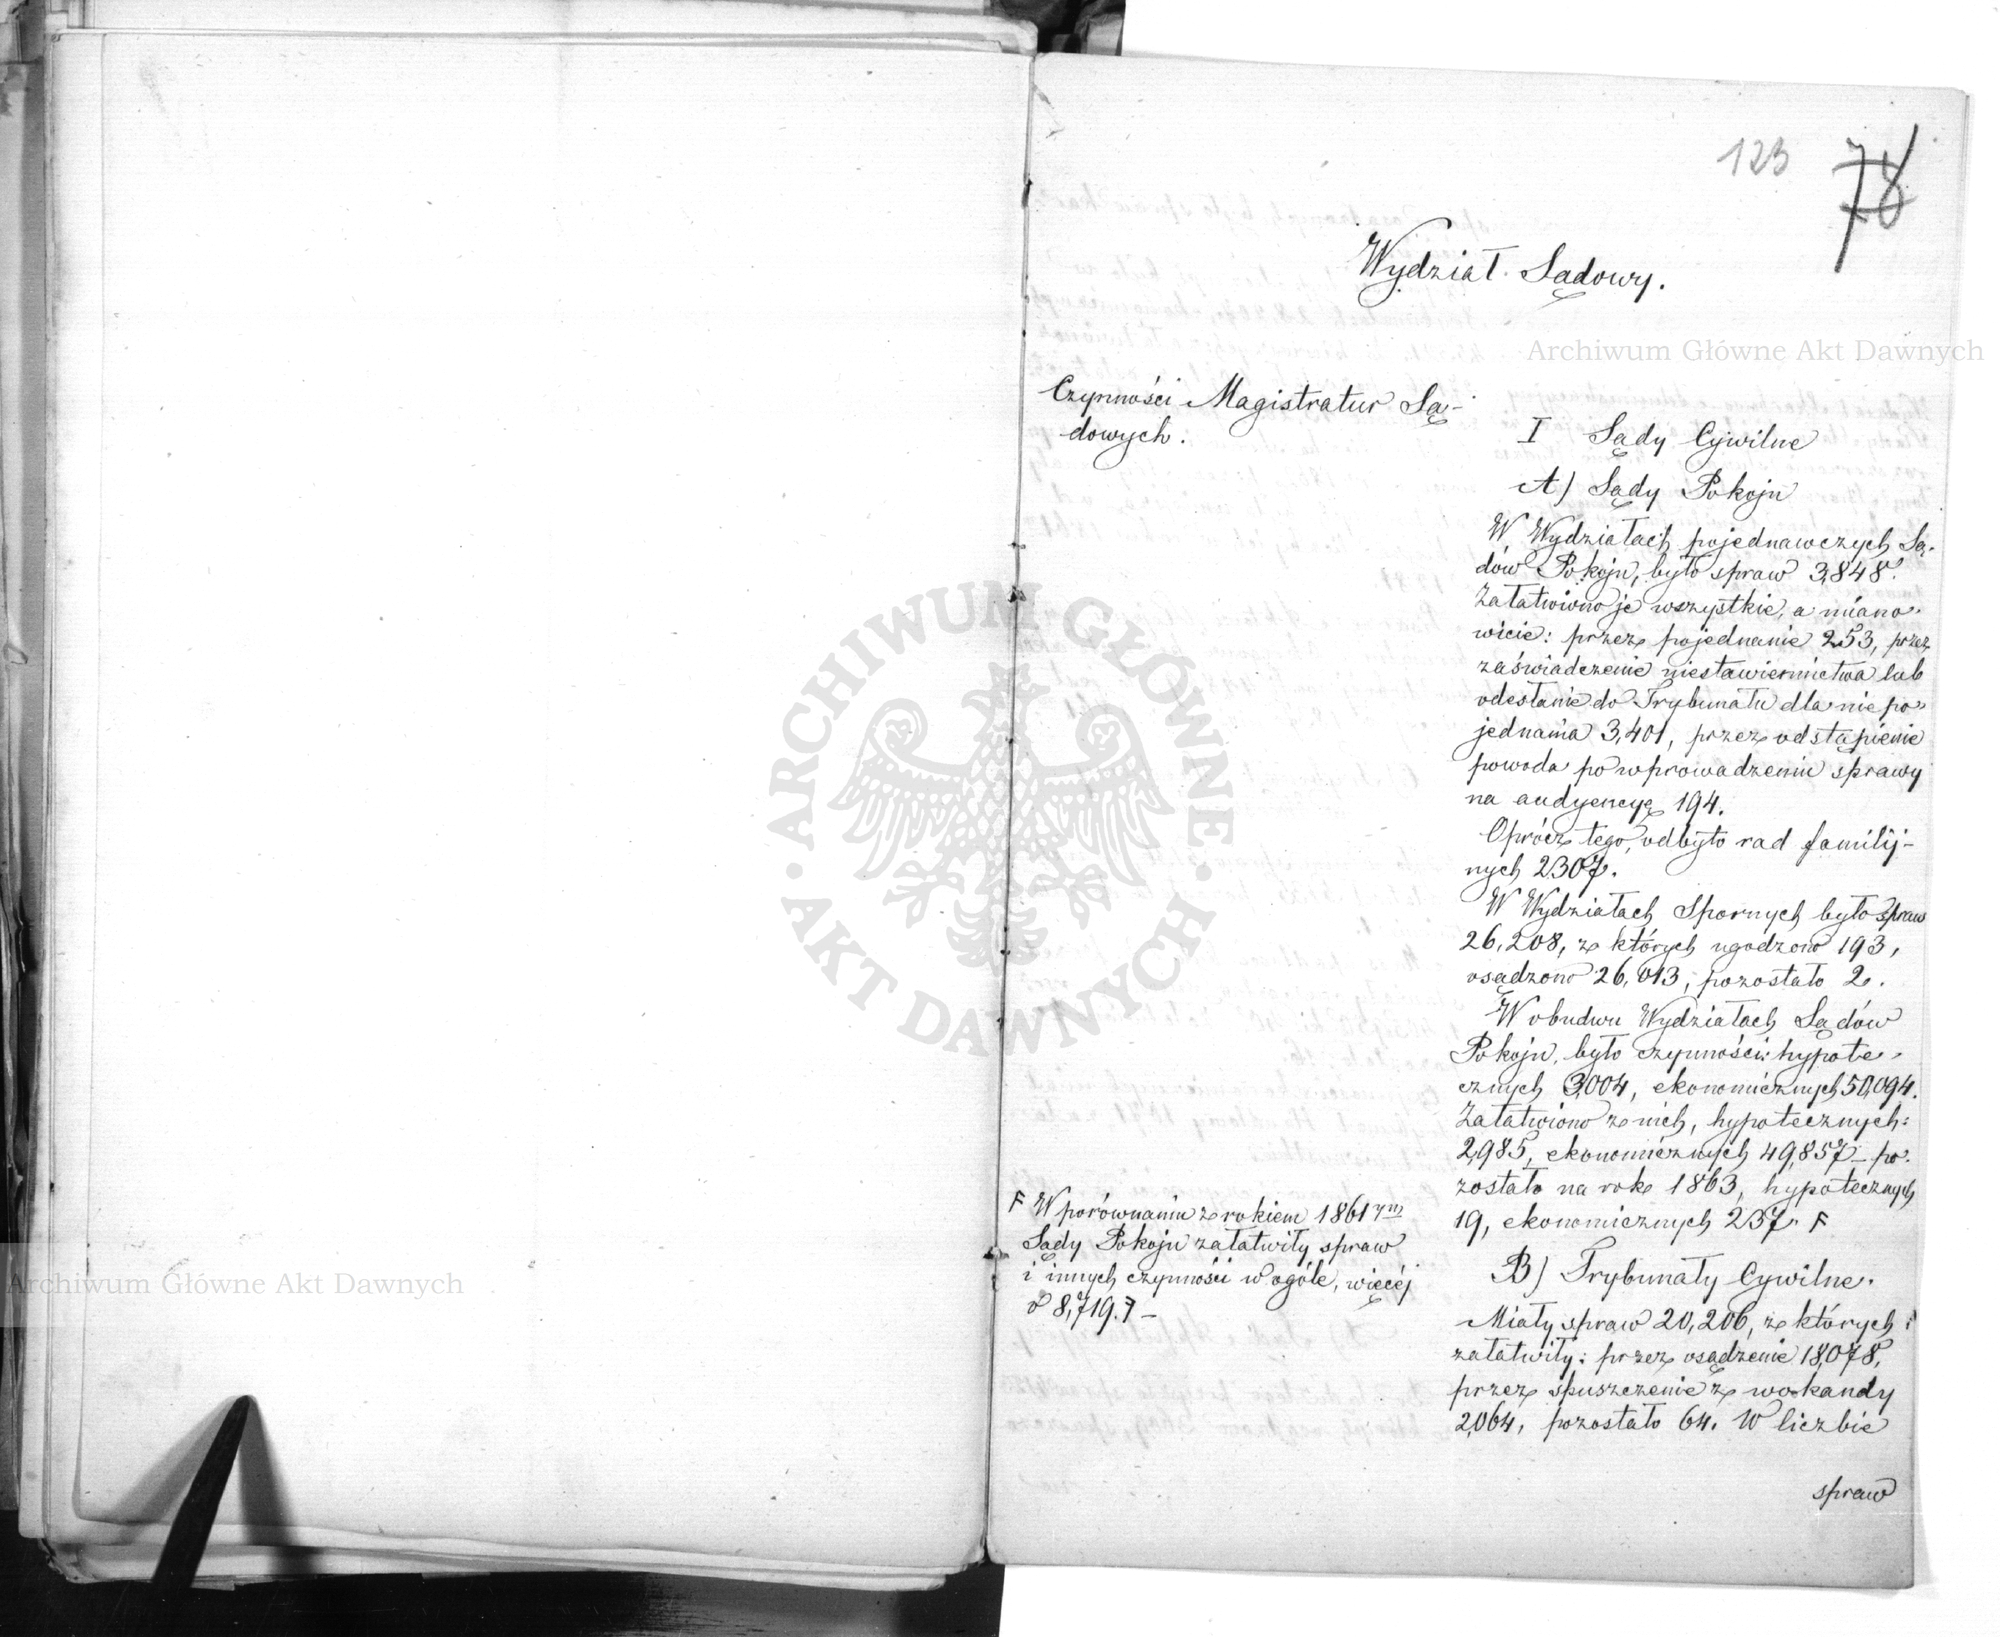 123 78
Wydział Sądowy.
Archiwum Główne Akt Dawnych
Czynności Magistratur Są-
dowych.
I Sądy Cywilne
A) Sądy Pokoju
W Wydziałach pojednawczych Są-
dów Pokoju, było spraw 3,848.
Załatwiono je wszystkie, a miano-
wicie: przez pojednanie 253, przez
zaświadczenie niestawiennictwa lub
odesłanie do Trybunału dla niepo-
jednania 3,401, przez odstąpienie
powoda po wprowadzeniu sprawy
na audyencyę 194.
Oprócz tego, odbyto rad familij-
nych 2307.
W Wydziałach Spornych było spraw
26,208, z których ugodzono 193,
osądzono 26,013, pozostało 2.
W obudwu Wydziałach Sądów
Pokoju, było czynności: hypote-
cznych 3,004, ekonomicznych 50,094.
Załatwiono z nich, hypotecznych:
2,985, ekonomicznych 49,857 – po-
zostało na rok 1863, hypotecznych
19, ekonomicznych 237. F
F W porównaniu z rokiem 1861ym
Sądy Pokoju załatwiły spraw
i innych czynności w ogóle, więcéj
o 8,719. F –
B) Trybunały Cywilne.
Miały spraw 20,206, z których
załatwiły: przez osądzenie 18,078,
przez spuszczenie z wokandy
2,064, pozostało 64. W liczbie
spraw
ARCHIWUM GŁÓWNE
AKT DAWNYCH
Archiwum Główne Akt Dawnych